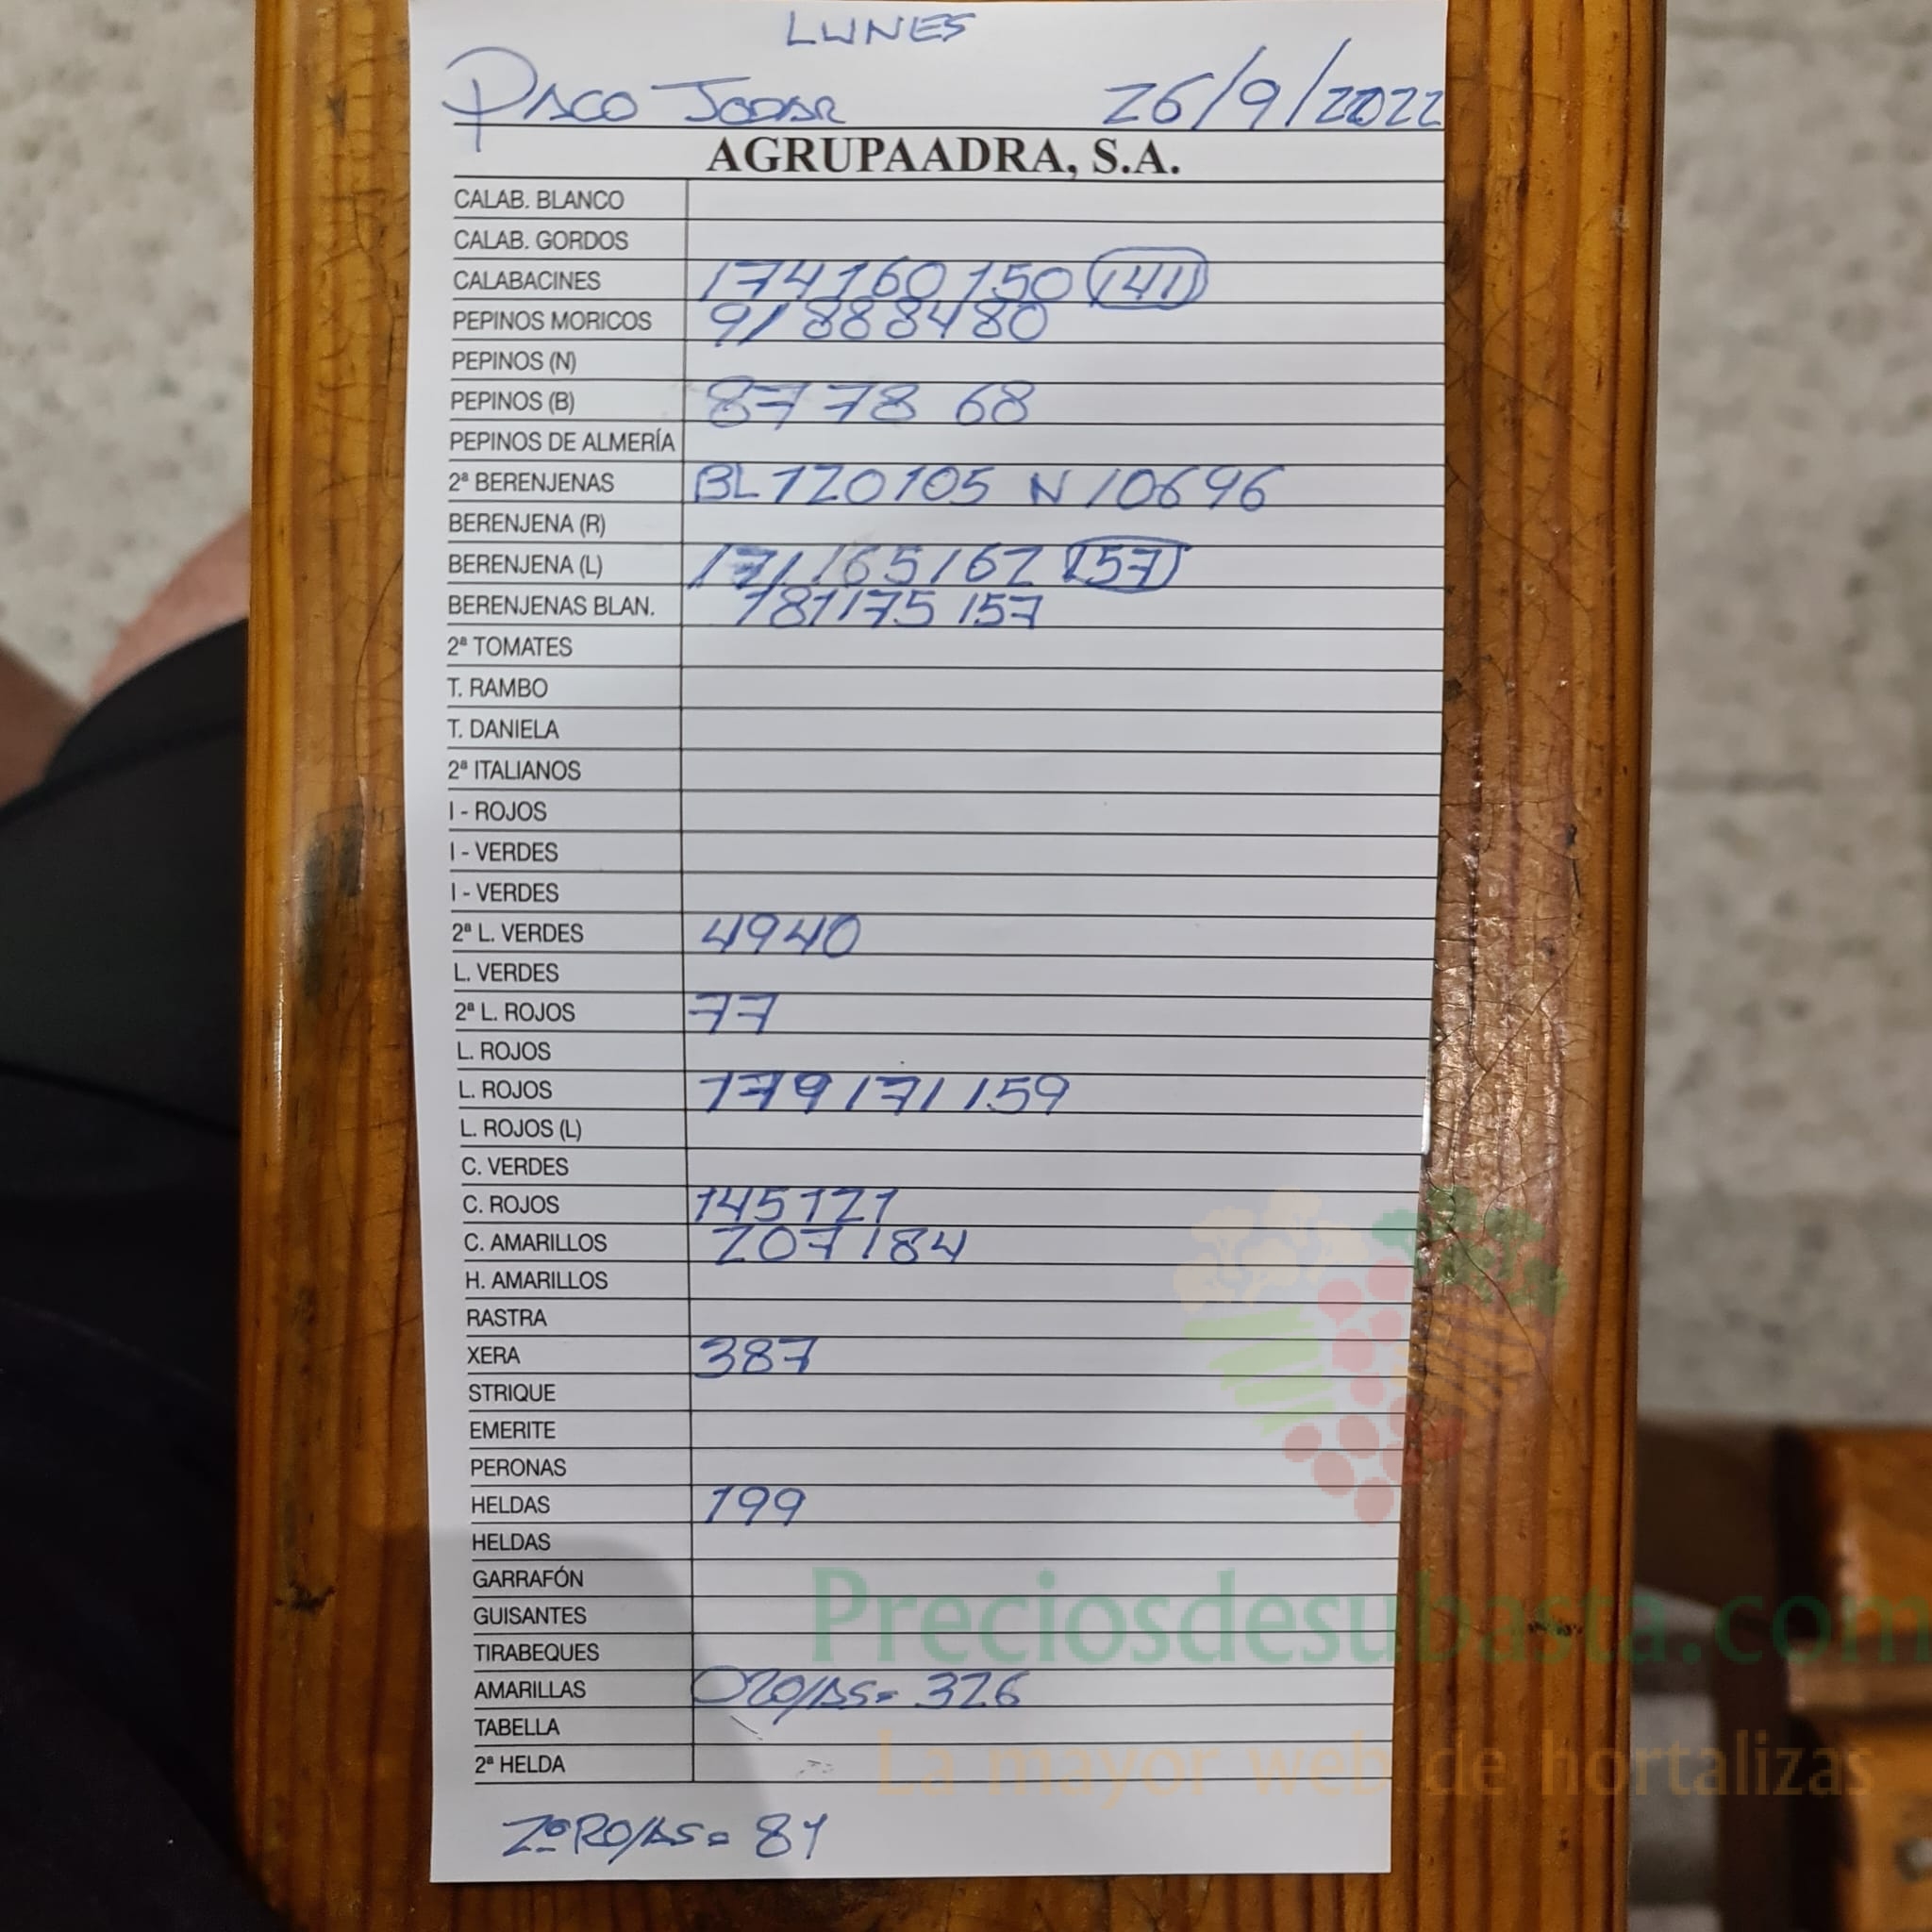 LUNES
PACO JODAR 26/9/2022
AGRUPAADRA, S.A.
CALAB. BLANCO
CALAB. GORDOS
CALABACINES 174 160 150 141
PEPINOS MORICOS 91 88 84 80
PEPINOS (N)
PEPINOS (B) 87 78 68
PEPINOS DE ALMERÍA
2ª BERENJENAS BL 120 105 N 106 96
BERENJENA (R)
BERENJENA (L) 171 165 162 157
BERENJENAS BLAN. 181 175 157
2ª TOMATES
T. RAMBO
T. DANIELA
2ª ITALIANOS
I - ROJOS
I - VERDES
I - VERDES
2ª L. VERDES 49 40
L. VERDES
2ª L. ROJOS 77
L. ROJOS
L. ROJOS 179 171 159
L. ROJOS (L)
C. VERDES
C. ROJOS 145 121
C. AMARILLOS 207 184
H. AMARILLOS
RASTRA
XERA 387
STRIQUE
EMERITE
PERONAS
HELDAS 199
HELDAS
GARRAFÓN
GUISANTES
TIRABEQUES
AMARILLAS ROJAS= 326
TABELLA
2ª HELDA
2ª ROJAS= 81
Preciosdesubasta.com
La mayor web de hortalizas